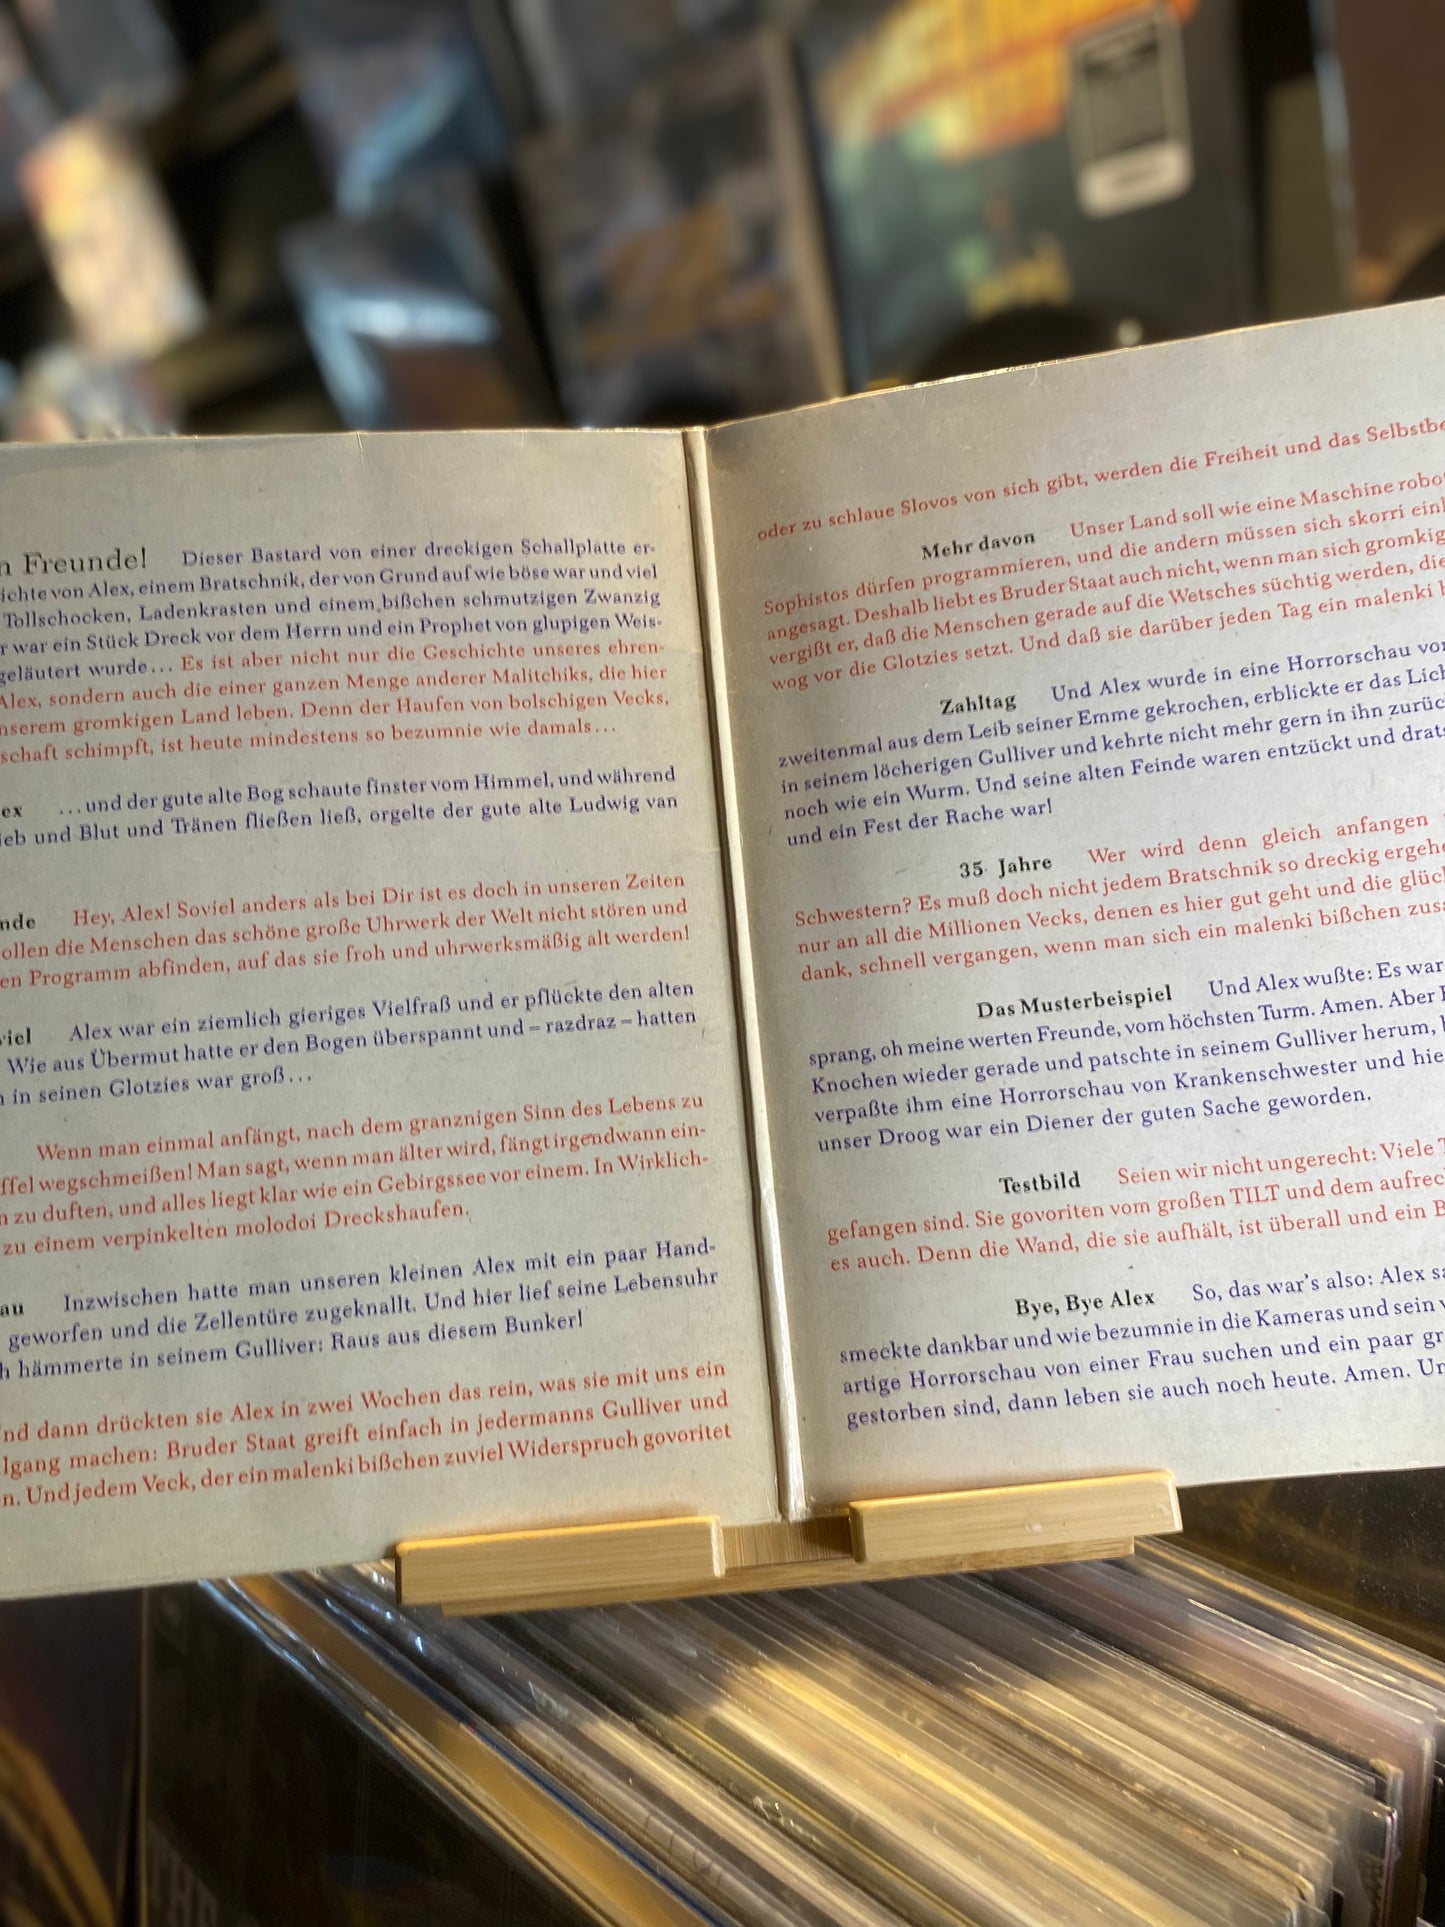 n Freunde! Dieser Bastard von einer dreckigen Schallplatte er-
ichte von Alex, einem Bratschnik, der von Grund auf wie böse war und viel
Tollschocken, Ladenkrasten und einem bißchen schmutzigen Zwanzig
r war ein Stück Dreck vor dem Herrn und ein Prophet von glupigen Weis-
geläutert wurde... Es ist aber nicht nur die Geschichte unseres ehren-
Alex, sondern auch die einer ganzen Menge anderer Malitchiks, die hier
nserem gromkigen Land leben. Denn der Haufen von bolschigen Vecks,
schaft schimpft, ist heute mindestens so bezumnie wie damals...
ex ...und der gute alte Bog schaute finster vom Himmel, und während
ieb und Blut und Tränen fließen ließ, orgelte der gute alte Ludwig van
nde Hey, Alex! Soviel anders als bei Dir ist es doch in unseren Zeiten
ollen die Menschen das schöne große Uhrwerk der Welt nicht stören und
en Programm abfinden, auf das sie froh und uhrwerksmäßig alt werden!
viel Alex war ein ziemlich gieriges Vielfraß und er pflückte den alten
Wie aus Übermut hatte er den Bogen überspannt und – razdraz – hatten
n in seinen Glotzies war groß...
Wenn man einmal anfängt, nach dem granznigen Sinn des Lebens zu
ffel wegschmeißen! Man sagt, wenn man älter wird, fängt irgendwann ein-
n zu duften, und alles liegt klar wie ein Gebirgssee vor einem. In Wirklich-
zu einem verpinkelten molodoi Dreckshaufen.
au Inzwischen hatte man unseren kleinen Alex mit ein paar Hand-
geworfen und die Zellentüre zugeknallt. Und hier lief seine Lebensuhr
h hämmerte in seinem Gulliver: Raus aus diesem Bunker!
nd dann drückten sie Alex in zwei Wochen das rein, was sie mit uns ein
lgang machen: Bruder Staat greift einfach in jedermanns Gulliver und
n. Und jedem Veck, der ein malenki bißchen zuviel Widerspruch govoritet
oder zu schlaue Slovos von sich gibt, werden die Freiheit und das Selbstbe
Mehr davon Unser Land soll wie eine Maschine robo
Sophistos dürfen programmieren, und die andern müssen sich skorri ein
angesagt. Deshalb liebt es Bruder Staat auch nicht, wenn man sich gromkig
vergißt er, daß die Menschen gerade auf die Wetsches süchtig werden, die
wog vor die Glotzies setzt. Und daß sie darüber jeden Tag ein malenki
Zahltag Und Alex wurde in eine Horrorschau vo
zweitenmal aus dem Leib seiner Emme gekrochen, erblickte er das Lich
in seinem löcherigen Gulliver und kehrte nicht mehr gern in ihn zurüc
noch wie ein Wurm. Und seine alten Feinde waren entzückt und drats
und ein Fest der Rache war!
35 Jahre Wer wird denn gleich anfangen
Schwestern? Es muß doch nicht jedem Bratschnik so dreckig ergehe
nur an all die Millionen Vecks, denen es hier gut geht und die glüc
dank, schnell vergangen, wenn man sich ein malenki bißchen zus
Das Musterbeispiel Und Alex wußte: Es war
sprang, oh meine werten Freunde, vom höchsten Turm. Amen. Aber
Knochen wieder gerade und patschte in seinem Gulliver herum,
verpaßte ihm eine Horrorschau von Krankenschwester und hie
unser Droog war ein Diener der guten Sache geworden.
Testbild Seien wir nicht ungerecht: Viele
gefangen sind. Sie govoriten vom großen TILT und dem aufrec
es auch. Denn die Wand, die sie aufhält, ist überall und ein B
Bye, Bye Alex So, das war's also: Alex sa
smeckte dankbar und wie bezumnie in die Kameras und sein
artige Horrorschau von einer Frau suchen und ein paar gr
gestorben sind, dann leben sie auch noch heute. Amen. Un